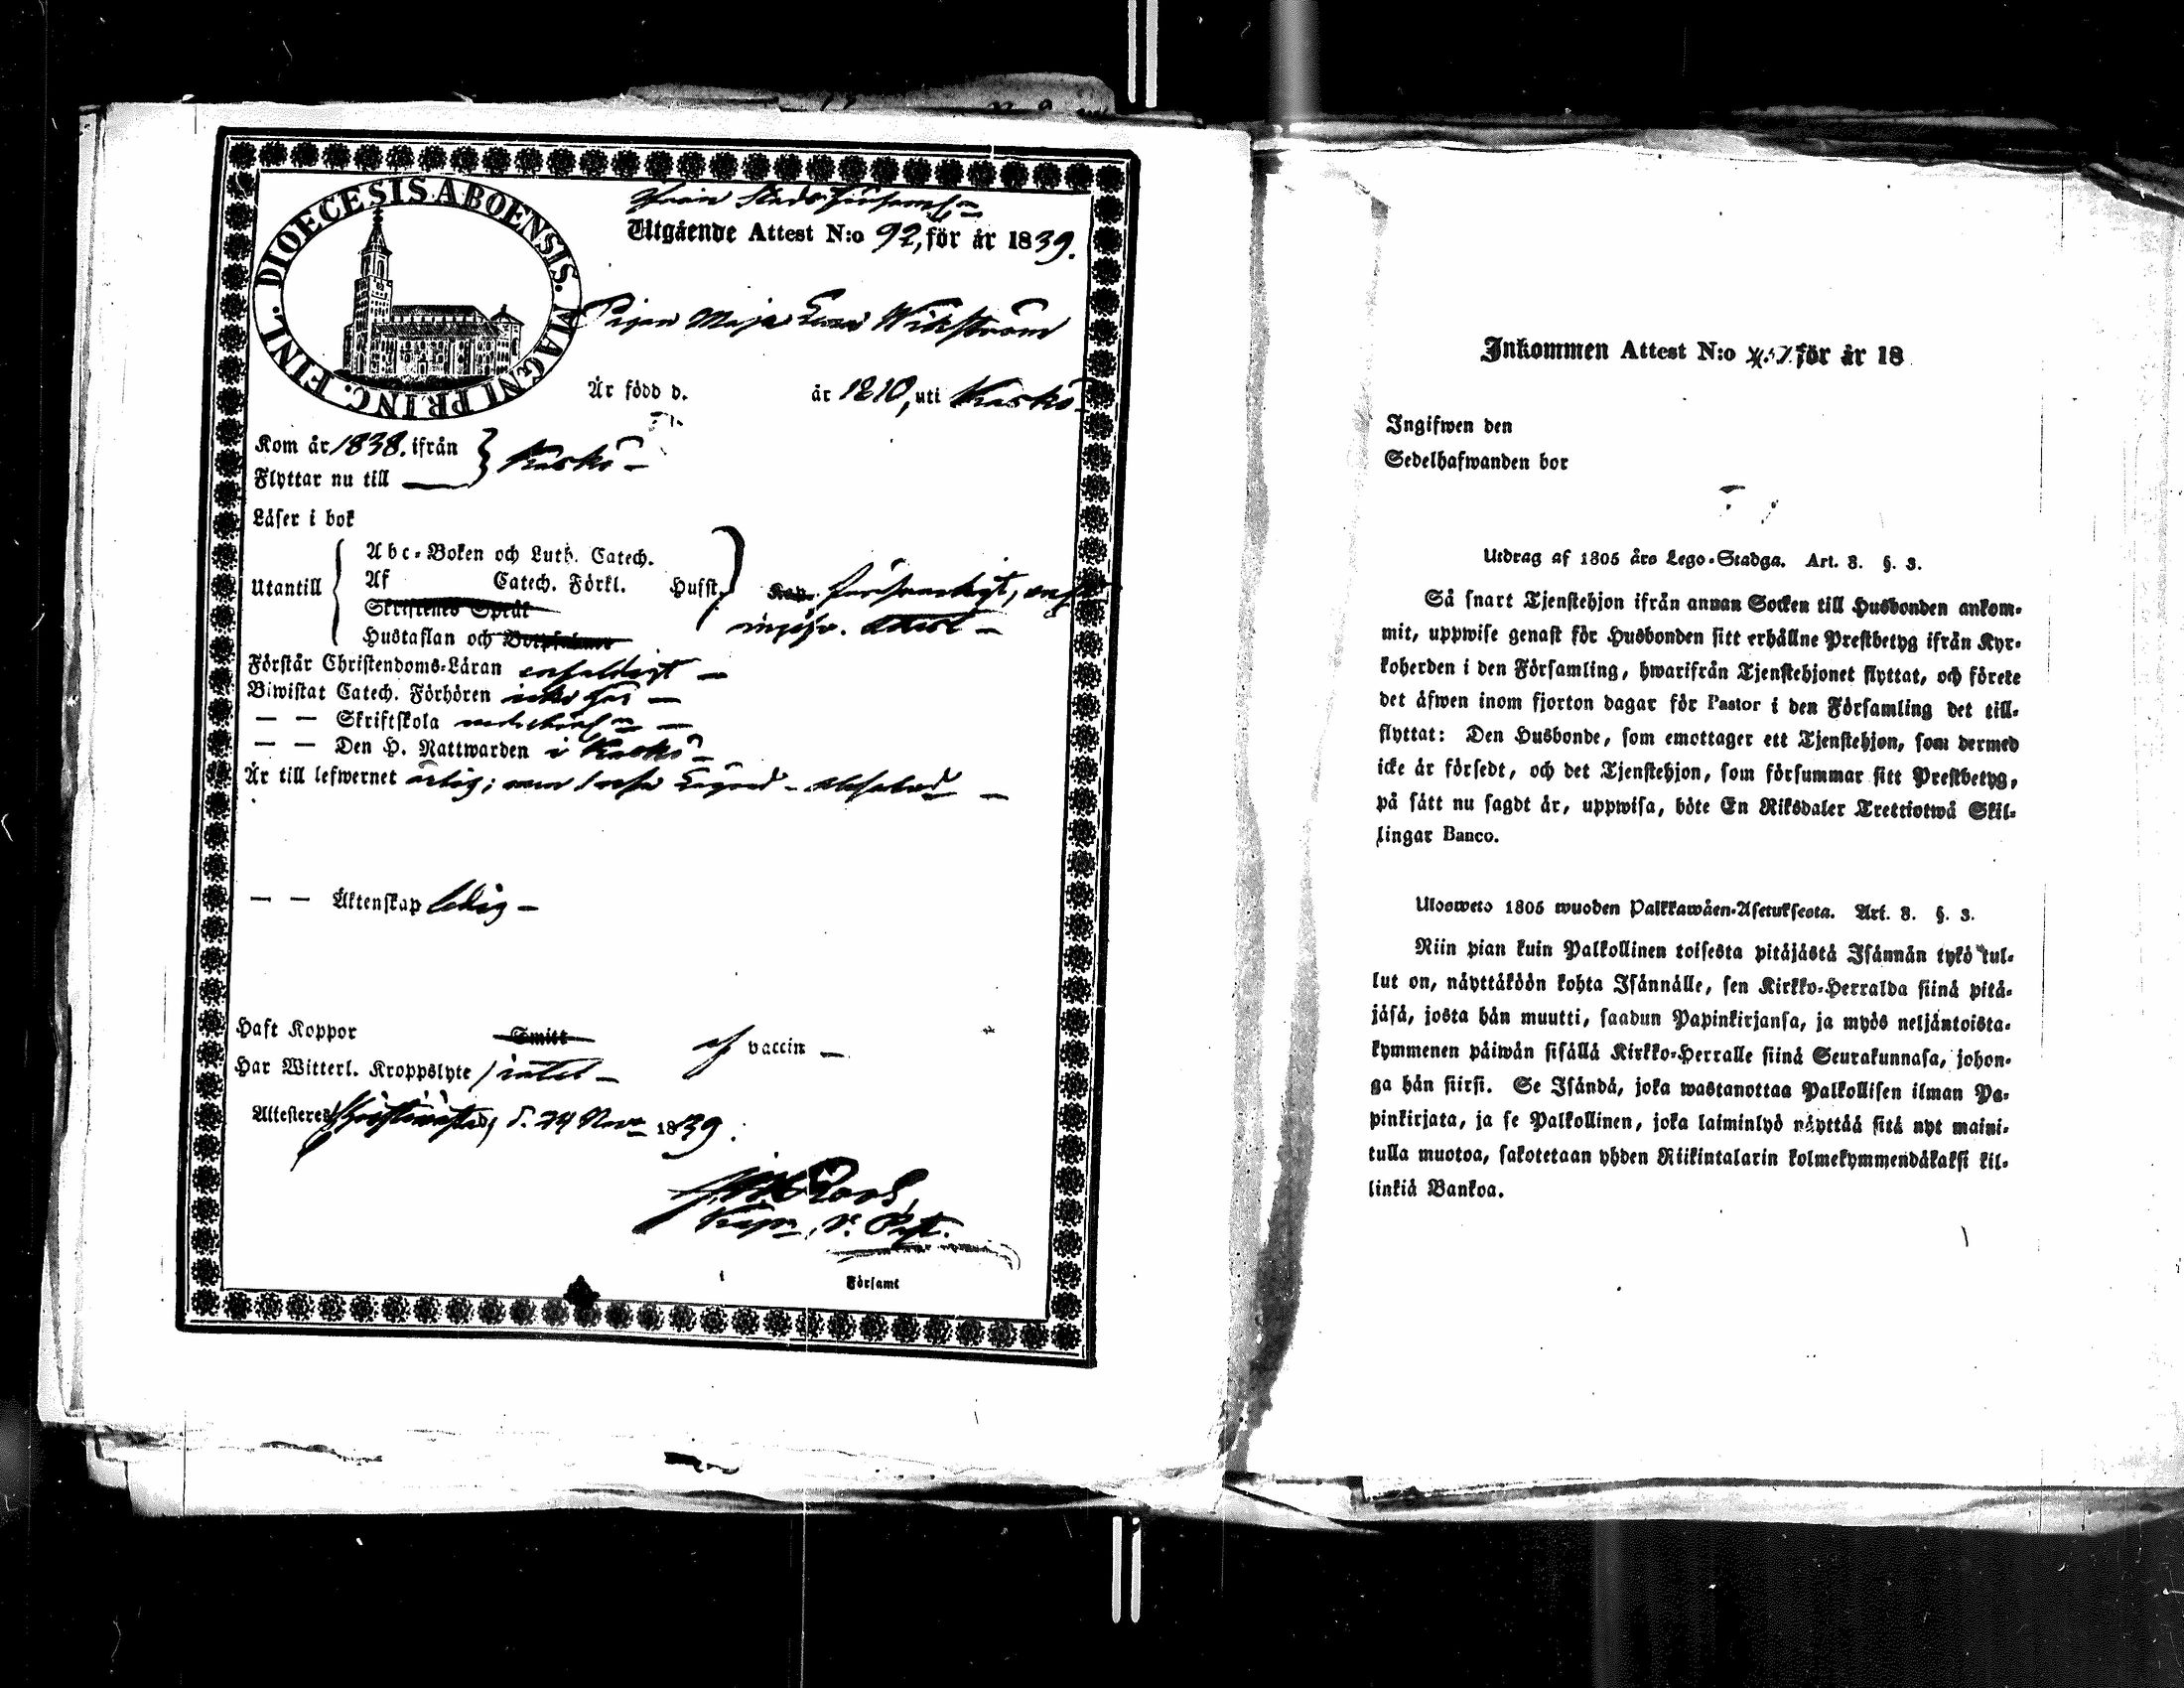 DIOECESIS ABOENSIS. MAGNI PRINC. FINL.
Från Stads Församl:n
Utgående Attest N:o 92, för år 1839.
Pigan Maja Wikström
År född d. år 1810, uti Kaskö
Kom år 1838. ifrån } Kaskö
Flyttar nu till
Låser i bok
Abc-Boken och Luth. Catech.
Utantill Af Catech. Förkl. Husst. försvarligt,
Skriftenes Språk
Hustaflan och
Förstår Christendoms-Låran enfaldigt
Biwistat Catech. Förhören icke här
— — Skriftskola
— — Den H. Nattwarden i Kaskö
År till lefwernet ärlig;
— — Åktenskap ledig
Haft Koppor Smitt af vaccin
Har Witterl. Kroppslyte intet
Attesteres Christinæstad, d. 24 Nov. 1839.
Kapn, V. Past.
Församl
Inkommen Attest N:o för år 18
Ingifwen den
Sedelhafwanden bor
Utdrag af 1805 års Lego-Stadga. Art. 8. §. 3.
Så snart Tjenstehjon ifrån annan Socken till Husbonden ankom-
mit, uppwise genast för Husbonden sitt erhållne Prestbetyg ifrån Kyr-
koherden i den Församling, hwarifrån Tjenstehjonet flyttat, och förete
det åfwen inom fjorton dagar för Pastor i den Församling det till-
flyttat: Den Husbonde, som emottager ett Tjenstehjon, som dermed
icke år försedt, och det Tjenstehjon, som försummar sitt Prestbetyg,
på sått nu sagdt år, uppwisa, böte En Riksdaler Trettiotwå Skil-
lingar Banco.
Uloswets 1805 wuoden Palkkawåen-Asetuksesta. Art. 8. §. 3.
Niin pian kuin Palkollinen toisesta pitåjåstå Isånnån tykö tul-
lut on, nåyttåköön kohta Isånnålle, sen Kirkko-Herralda siinå pitå-
jåså, josta hån muutti, saadun Papinkirjansa, ja myös neljåntoista-
kymmenen påiwån sisållå Kirkko-Herralle siinå Seurakunnasa, johon-
ga hån siirsi. Se Isåndå, joka wastanottaa Palkollisen ilman Pa-
pinkirjata, ja se Palkollinen, joka laiminlyö nåyttåå sitå nyt maini-
tulla muotoa, sakotetaan yhden Riikintalarin kolmekymmendåkaksi kil-
linkiå Bankoa.